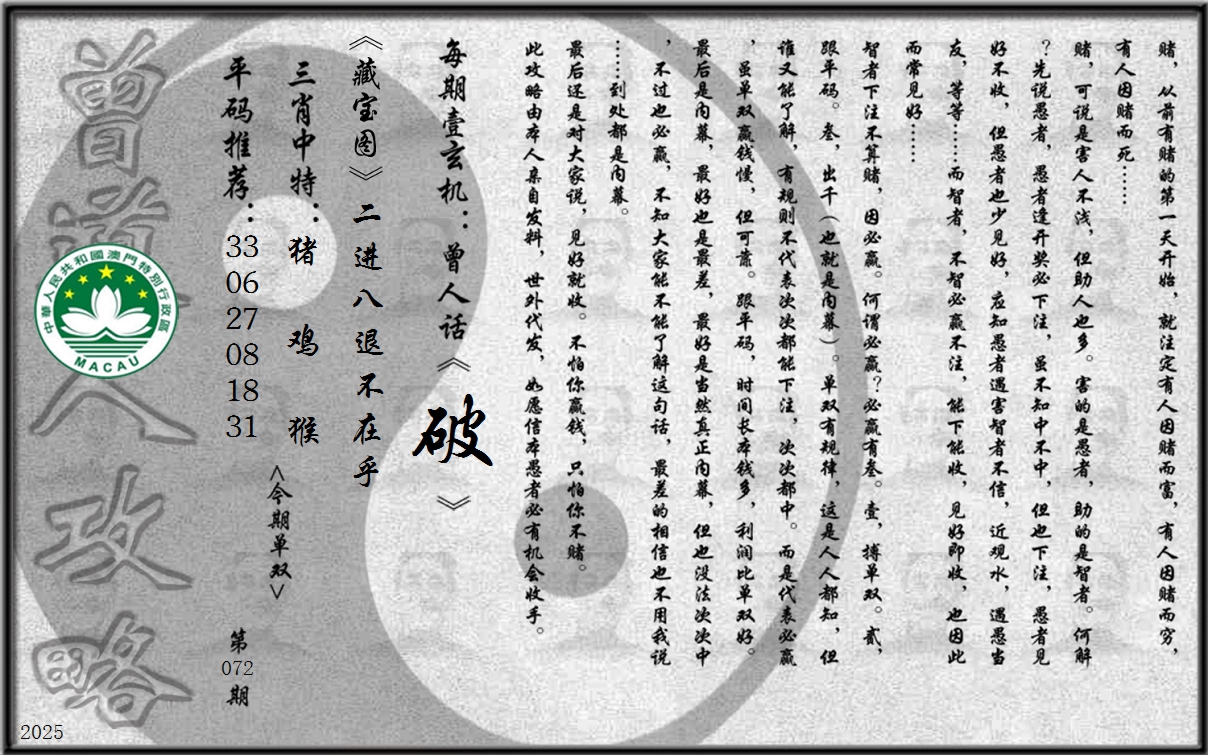 赌，从前有赌的第一天开始，就注定有人因赌而富，有人因赌而穷，
有人因赌而死……
赌，可说是害人不浅，但助人也多。害的是愚者，助的是智者。何解
？先说愚者，愚者逢开奖必下注，虽不知中不中，但也下注，愚者见
好不收，但愚者也少见好，应知愚者遇害智者不信，近观水，遇愚当
友，等等……而智者，不智必赢不注，能下能收，见好即收，也因此
而常见好……
智者下注不算赌，因必赢。何谓必赢？必赢有叁。壹，搏单双。贰，
跟平码。叁，出千（也就是内幕）。单双有规律，这是人人都知，但
谁又能了解，有规则不代表次次都能下注，次次都中。而是代表必赢
，虽单双赢钱慢，但可靠。跟平码，时间长本钱多，利润比单双好。
最后是内幕，最好也是最差，最好是当然真正内幕，但也没法次次中
，不过也必赢，不知大家能不能了解这句话，最差的相信也不用我说
……到处都是内幕。
最后还是对大家说，见好就收。不怕你赢钱，只怕你不赌。
此攻略由本人亲自发料，世外代发，如愿信本愚者必有机会收手。
每期壹玄机：曾人话《破》
《藏宝图》二进八退不在乎
三肖中特：猪 鸡 猴
<今期单双>
平码推荐：33 06 27 08 18 31
第072期
曾道人攻略
中華人民共和國澳門特別行政區
MACAU
2025